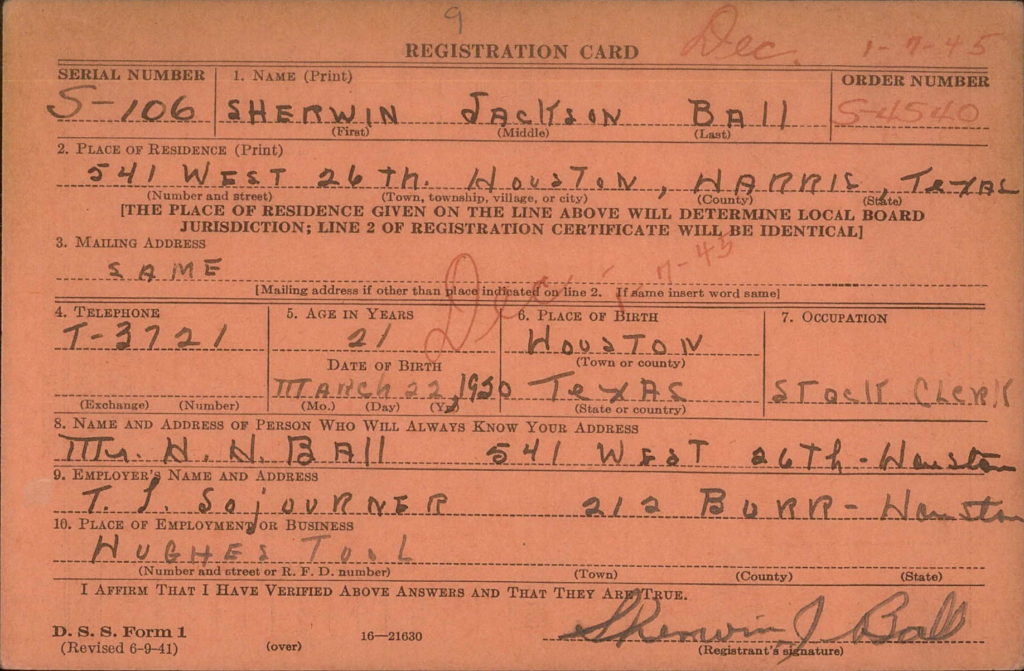 9
REGISTRATION CARD Dec. 1-7-45
SERIAL NUMBER 1. NAME (Print) ORDER NUMBER
S-106 SHERWIN JACKSON BALL S-4540
(First) (Middle) (Last)
2. PLACE OF RESIDENCE (Print)
541 WEST 26th. HOUSTON, HARRIS, TEXAS
(Number and street) (Town, township, village, or city) (County) (State)
[THE PLACE OF RESIDENCE GIVEN ON THE LINE ABOVE WILL DETERMINE LOCAL BOARD
JURISDICTION; LINE 2 OF REGISTRATION CERTIFICATE WILL BE IDENTICAL]
3. MAILING ADDRESS
SAME Dec. 1-7-45
[Mailing address if other than place indicated on line 2. If same insert word same]
4. TELEPHONE 5. AGE IN YEARS 6. PLACE OF BIRTH 7. OCCUPATION
T-3721 21 HOUSTON
DATE OF BIRTH (Town or county)
MARCH 22, 1920 TEXAS STOCK CLERK
(Exchange) (Number) (Mo.) (Day) (Yr.) (State or country)
8. NAME AND ADDRESS OF PERSON WHO WILL ALWAYS KNOW YOUR ADDRESS
H. H. BALL 541 WEST 26th - Houston
9. EMPLOYER'S NAME AND ADDRESS
SOJOURNER 212 BURR - Houston
10. PLACE OF EMPLOYMENT OR BUSINESS
HUGHES TOOL
(Number and street or R. F. D. number) (Town) (County) (State)
I AFFIRM THAT I HAVE VERIFIED ABOVE ANSWERS AND THAT THEY ARE TRUE.
D. S. S. Form 1 Sherwin J Ball
(Revised 6-9-41) (over) 16—21630 (Registrant's signature)